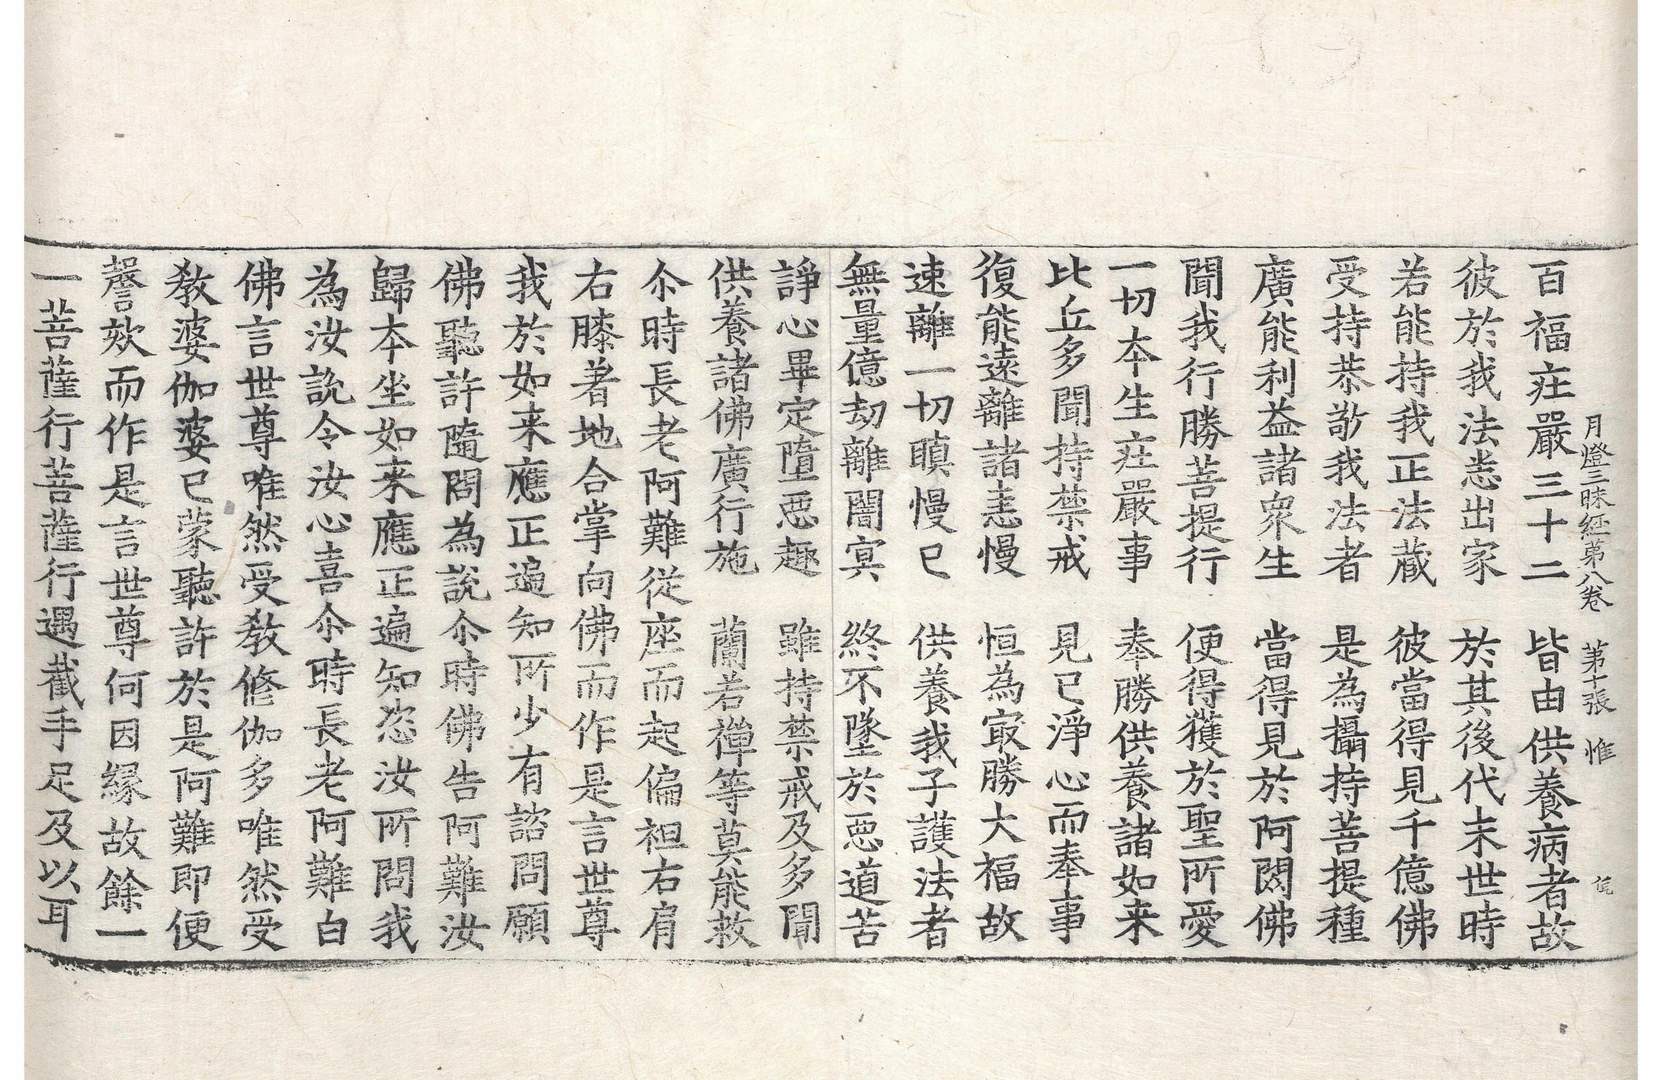 月燈三昧經第八卷　第十張　惟
百福莊嚴三十二　皆由供養病者故
彼於我法恚出家　於其後代末世時
若能持我正法藏　彼當得見千億佛
受持恭敬我法者　是為攝持菩提種
廣能利益諸衆生　當得見於阿閦佛
聞我行勝菩提行　便得獲於聖所愛
一切本生莊嚴事　奉勝供養諸如来
比丘多聞持禁戒　見已淨心而奉事
復能遠離諸恚慢　恒為㝡勝大福故
速離一切瞋慢已　供養我子護法者
無量億劫離闇冥　終不墜於惡道苦
諍心畢定墮惡趣　雖持禁戒及多聞
供養諸佛廣行施　蘭若禪等莫能救
尒時長老阿難從座而起偏袒右肩
右膝著地合掌向佛而作是言世尊
我於如来應正遍知所少有諮問願
佛聽許隨問為說尒時佛告阿難汝
歸本坐如来應正遍知恣汝所問我
為汝說令汝心喜尒時長老阿難白
佛言世尊唯然受教修伽多唯然受
教婆伽婆已蒙聽許於是阿難即便
謦欬而作是言世尊何因緣故餘一
一菩薩行菩薩行遇截手足及以耳